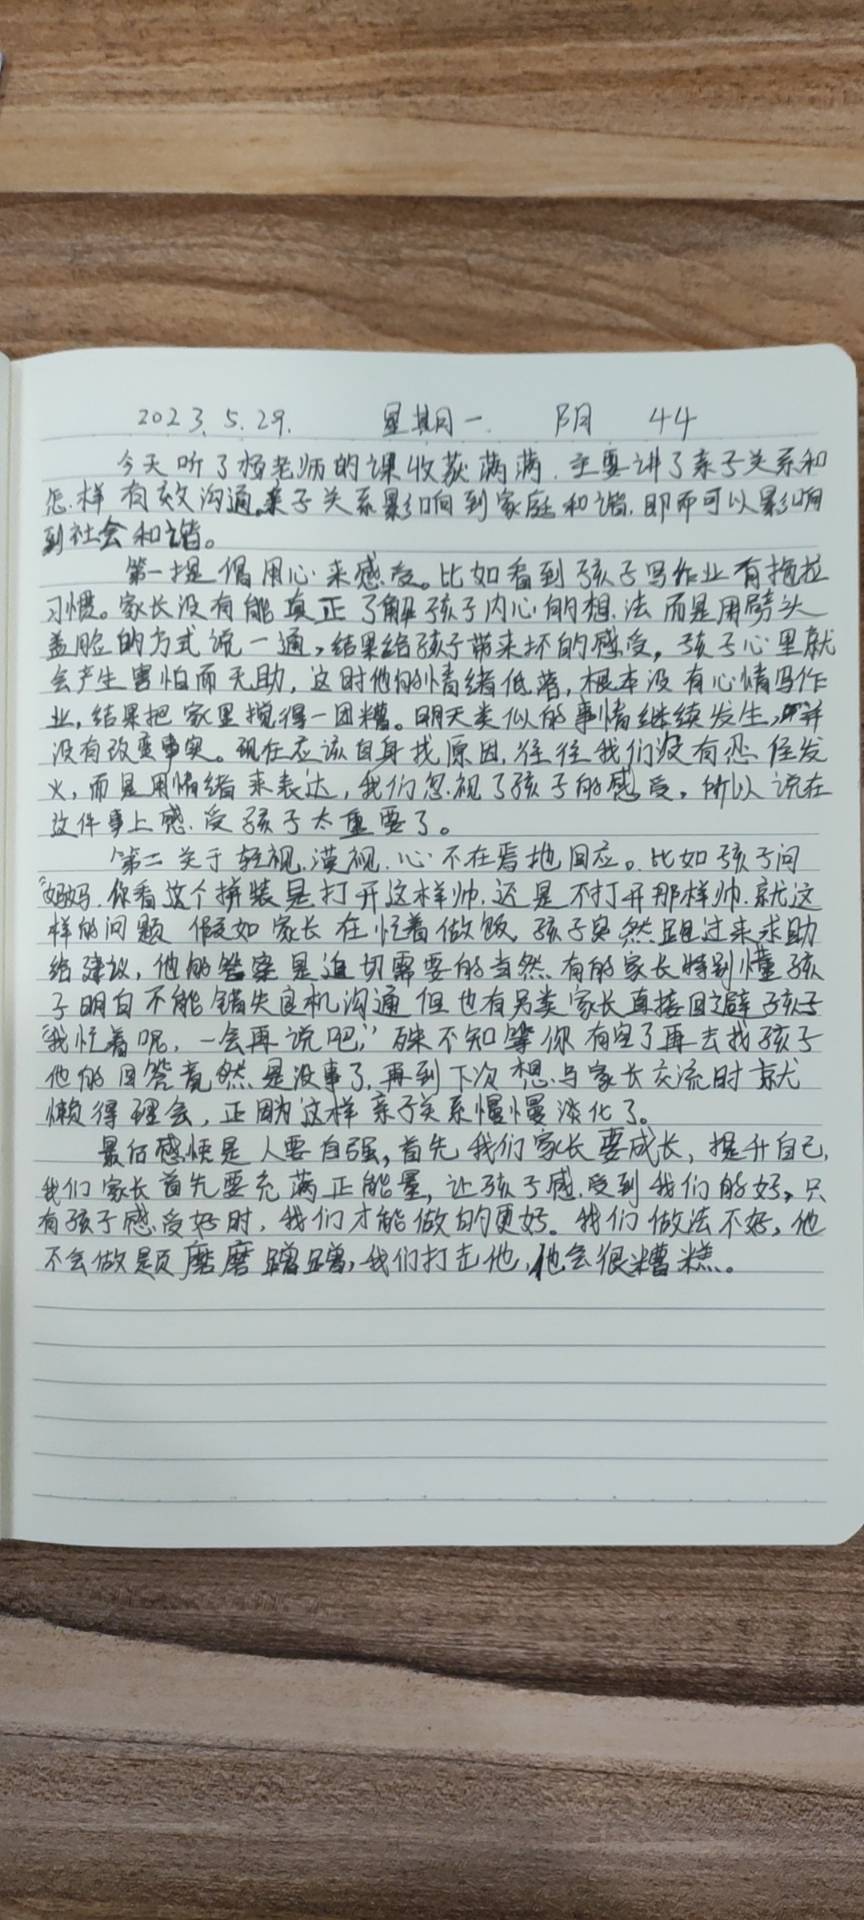 2023.5.29. 星期一 阴 44
今天听了杨老师的课收获满满.主要讲了亲子关系和
怎样有效沟通。亲子关系影响到家庭和谐.即而可以影响
到社会和谐。
第一提倡用心来感受。比如看到孩子写作业有拖拉
习惯。家长没有能真正了解孩子内心的想法而是用劈头
盖脸的方式说一通,结果给孩子带来坏的感受,孩子心里就
会产生害怕而无助,这时他的情绪低落,根本没有心情写作
业,结果把家里搅得一团糟。明天类似的事情继续发生,并
没有改变事实。现在应该自身找原因,往往我们没有忍住发
火,而是用情绪来表达,我们忽视了孩子的感受,所以说在
这件事上感受孩子太重要了。
第二关于轻视.漠视.心不在焉地回应。比如孩子问
"妈妈.你看这个拼装是打开这样帅.还是不打开那样帅.就这
样的问题 假如家长在忙着做饭,孩子突然跑过来求助
给建议,他的答案是迫切需要的当然有的家长特别懂孩
子明白不能错失良机沟通但也有另类家长直接回避孩子
"我忙着呢,一会再说吧,"殊不知等你有空了再去找孩子
他的回答竟然是没事了,再到下次想与家长交流时就
懒得理会,正因为这样亲子关系慢慢淡化了。
最后感悟是人要自强,首先我们家长要成长,提升自己,
我们家长首先要充满正能量,让孩子感受到我们的好,只
有孩子感受好时,我们才能做的更好。我们做法不好,他
不会做是页磨磨蹭蹭,我们打击他,他会很糟糕。